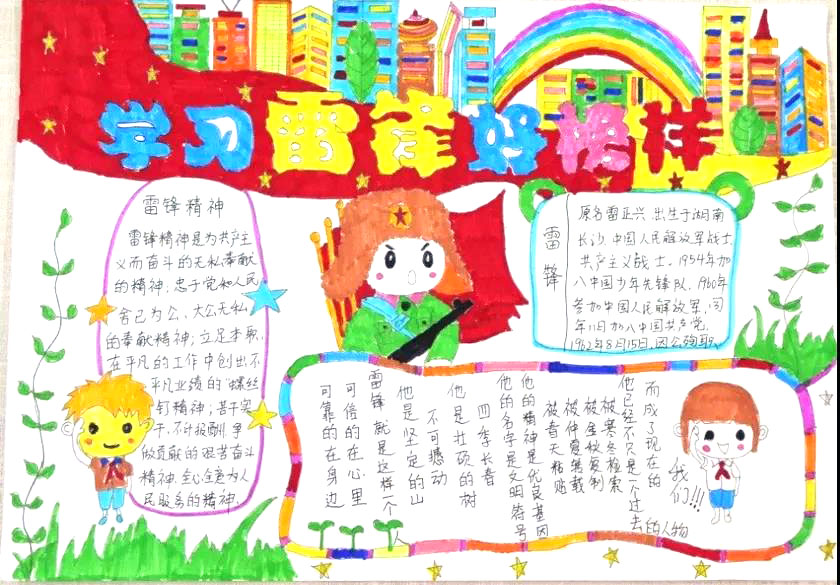 学习雷锋好榜样
雷锋精神
雷锋精神是为共产主
义而奋斗的无私奉献
的精神;忠于党和人民
舍己为公、大公无私
的奉献精神;立足本职、
在平凡的工作中创出不
平凡业绩的"螺丝
钉精神;苦干实
干、不计报酬、争
做贡献的艰苦奋斗
精神、全心全意为人
民服务的精神
雷锋
原名雷正兴,出生于湖南
长沙,中国人民解放军战士,
共产主义战士,1954年加
入中国少年先锋队,1960年
参加中国人民解放军,同
年11月加入中国共产党,
1962年8月15日,因公殉职
而成了现在的我们!!!
他已经不只是一个过去的人物
被寒冬检索
被金秋复制
被仲夏笺载
被春天粘贴
他的精神是优良基因
他的名字是文明符号
四季长春
他是壮硕的树
不可撼动
他是坚定的山
雷锋就是这样一个人
可信的在心里
可靠的在身边